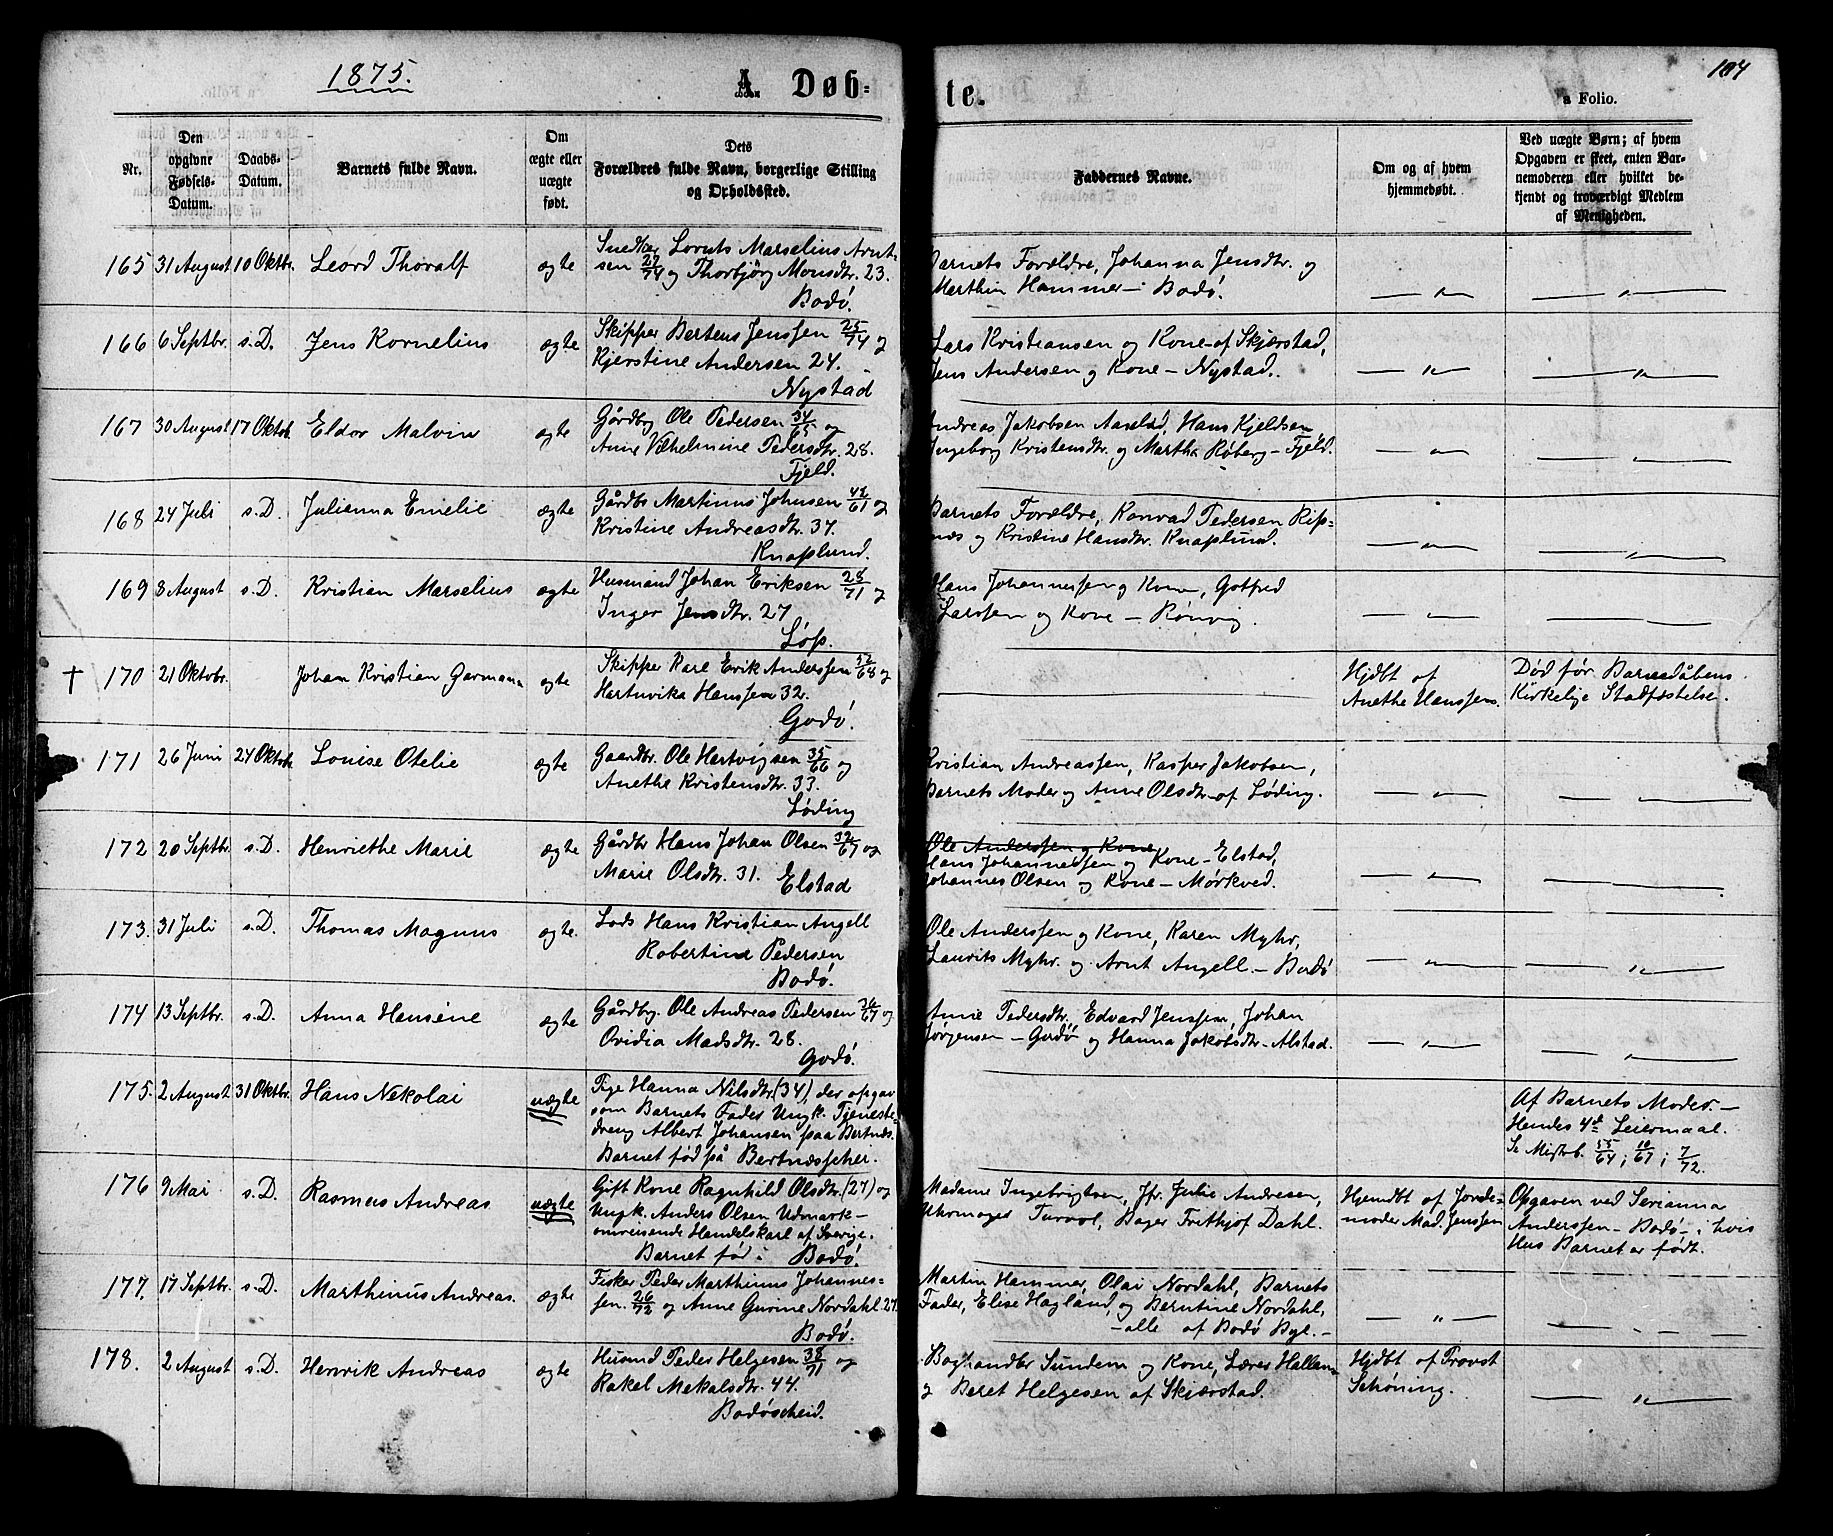 1875.
A. Døb-
te.
104
a Folio.
Nr.
Den opgivne Fødsels-Datum.
Daabs-Datum.
Barnets fulde Navn.
Om ægte eller uægte født.
Dets Forældres fulde Navn, borgerlige Stilling og Opholdssted.
Faddernes Navne.
Om og af hvem hjemmedøbt.
Ved uægte Børn; af hvem Opgaven er skeet, enten Barnemoderen eller hvilket bekjendt og troværdigt Medlem af Menigheden.
165 31 August 10 Oktbr. Leord Thoralf ægte Snedker Loruts Marselius Arnt-
sen 27/74 og Thorbjørg Monsdtr. 23.
Bodø.
Barnets Forældre, Johanna Jensdtr. og
Marthin Hammer – Bodø.
— " — — " —
166 6 Septbr. s.D. Jens Kornelius ægte Skipper Bertens Jenssen 25/74 og
Kjerstine Andersen 24.
Nystad
Lars Kristiansen og Kone – af Skjærstad,
Jens Andersen og Kone – Nystad.
— " — — " —
167 30 August 17 Oktob. Eldor Malvin ægte Gårdbr Ole Pedersen 34/55 og
Anne Vilhelmine Pedersdtr. 28.
Fjeld.
Andreas Jakobsen, Hans Kjeldsen
Ingeborg Kristensdtr. og Martha Röberg – Fjeld.
— " — — " —
168 24 Juli s.D. Julianna Emelie ægte Gårdbr Martinus Johnsen 42/61 og
Kristine Andreasdtr. 37.
Knaplund.
Barnets Forældre, Konrad Pedersen Rip-
næs og Kristine Hansdtr. Knaplund.
— " — — " —
169 3 August s.D. Kristian Marselius ægte Husmand Johan Eriksen 28/71 og
Inger Jensdtr. 27
Löp.
Hans Johannessen og Kone, Gotfred
Larssen og Kone – Rönvig.
— " — — " —
† 170 21 Oktobr. Johan Kristian Garmann ægte Skipper Karl Erik Anderssen 32/68 og
Hartvika Hanssen 32.
Godö.
Hjdbt af
Anethe Hanssen.
Död før Barnedåbens
Kirkelige Stadfæstelse.
171 26 Juni 24 Oktob. Louise Otelie ægte Gaardbr. Ole Hartvigsen 35/66 og
Anethe Kristensdtr. 33.
Löding
Kristian Andreassen, Kasper Jakobsen,
Barnets Moder og Anne Olsdtr. af Löding.
— " — — " —
172 20 Septbr. s.D. Henriethe Marie ægte Gårdbr Hans Johan Olsen 32/67 og
Marie Olsdtr. 31. Elstad
Ole Anderssen og Kone
Hans Johannessen og Kone – Elstad,
Johannes Olsen og Kone – Mörkved.
— " — — " —
173. 31 Juli s.D. Thomas Magnus ægte. Lods Hans Kristian Angell
Robertine Pedersen
Bodö.
Ole Anderssen og Kone, Karen Myhr,
Laurits Myhr. og Arnt Angell – Bodö
— " — — " —
174 13 Septbr. s.D. Anna Hansine ægte Gårdbr. Ole Andreas Pedersen 36/67 og
Ovidia Madsdtr. 28.
Godö.
Anne Pedersdtr, Edvard Jenssen, Johan
Jörgensen – Godö og Hanna Jakobsdtr – Alstad.
— " — — " —
175. 2 August 31 Oktbr. Hans Nekolai uægte Pige Hanna Nilsdtr. (34), der opgav
som Barnets Fader Ungk. Tjeneste-
dreng Albert Johansen paa Bertnæs.
Barnet född på Bertnæsseher.
Af Barnets Moder. –
Hendes 4de Leiermaal.
Se Mistrb. 55/64; 10/67; 7/72.
176 9 Mai s.D. Rasmus Andreas uægte Gift Kone Ragnhild Olsdtr. (27) og
Ungk. Anders Olsen Udmark –
omreisende Handelskarl af Sverige.
Barnet född i Bodö.
Madame Ingebrigtsen, Jfr. Julie Andresen,
Uhrmager Turvol, Bager Frithjof Dahl.
Hjemdbt af Jorde-
moder Mad. Jenssen
Opgaven ved Serianna
Anderssen – Bodö – i hvis
Hus Barnet er födt.
177. 17 Septbr. s.D. Marthinus Andreas. ægte Fisker Peder Marthinus Johannes-
sen. 26/72 og Anne Gurine Nordahl 27.
Bodö.
Martin Hammer, Olai Nordahl, Barnets
Fader, Elise Hagland, og Berntine Nordahl,
– alle af Bodö Bye. –
— " — — " —
178. 2 August s.D. Henrik Andreas ægte Husmd Peder Helgesen 38/71 og
Rakel Mekalsdtr. 44.
Bodöscheid.
Boghandler Sundem og Kone, Lærer Halland
og Beret Helgesen af Skjærstad.
Hjdbt af Provst
Schöning.
— " —